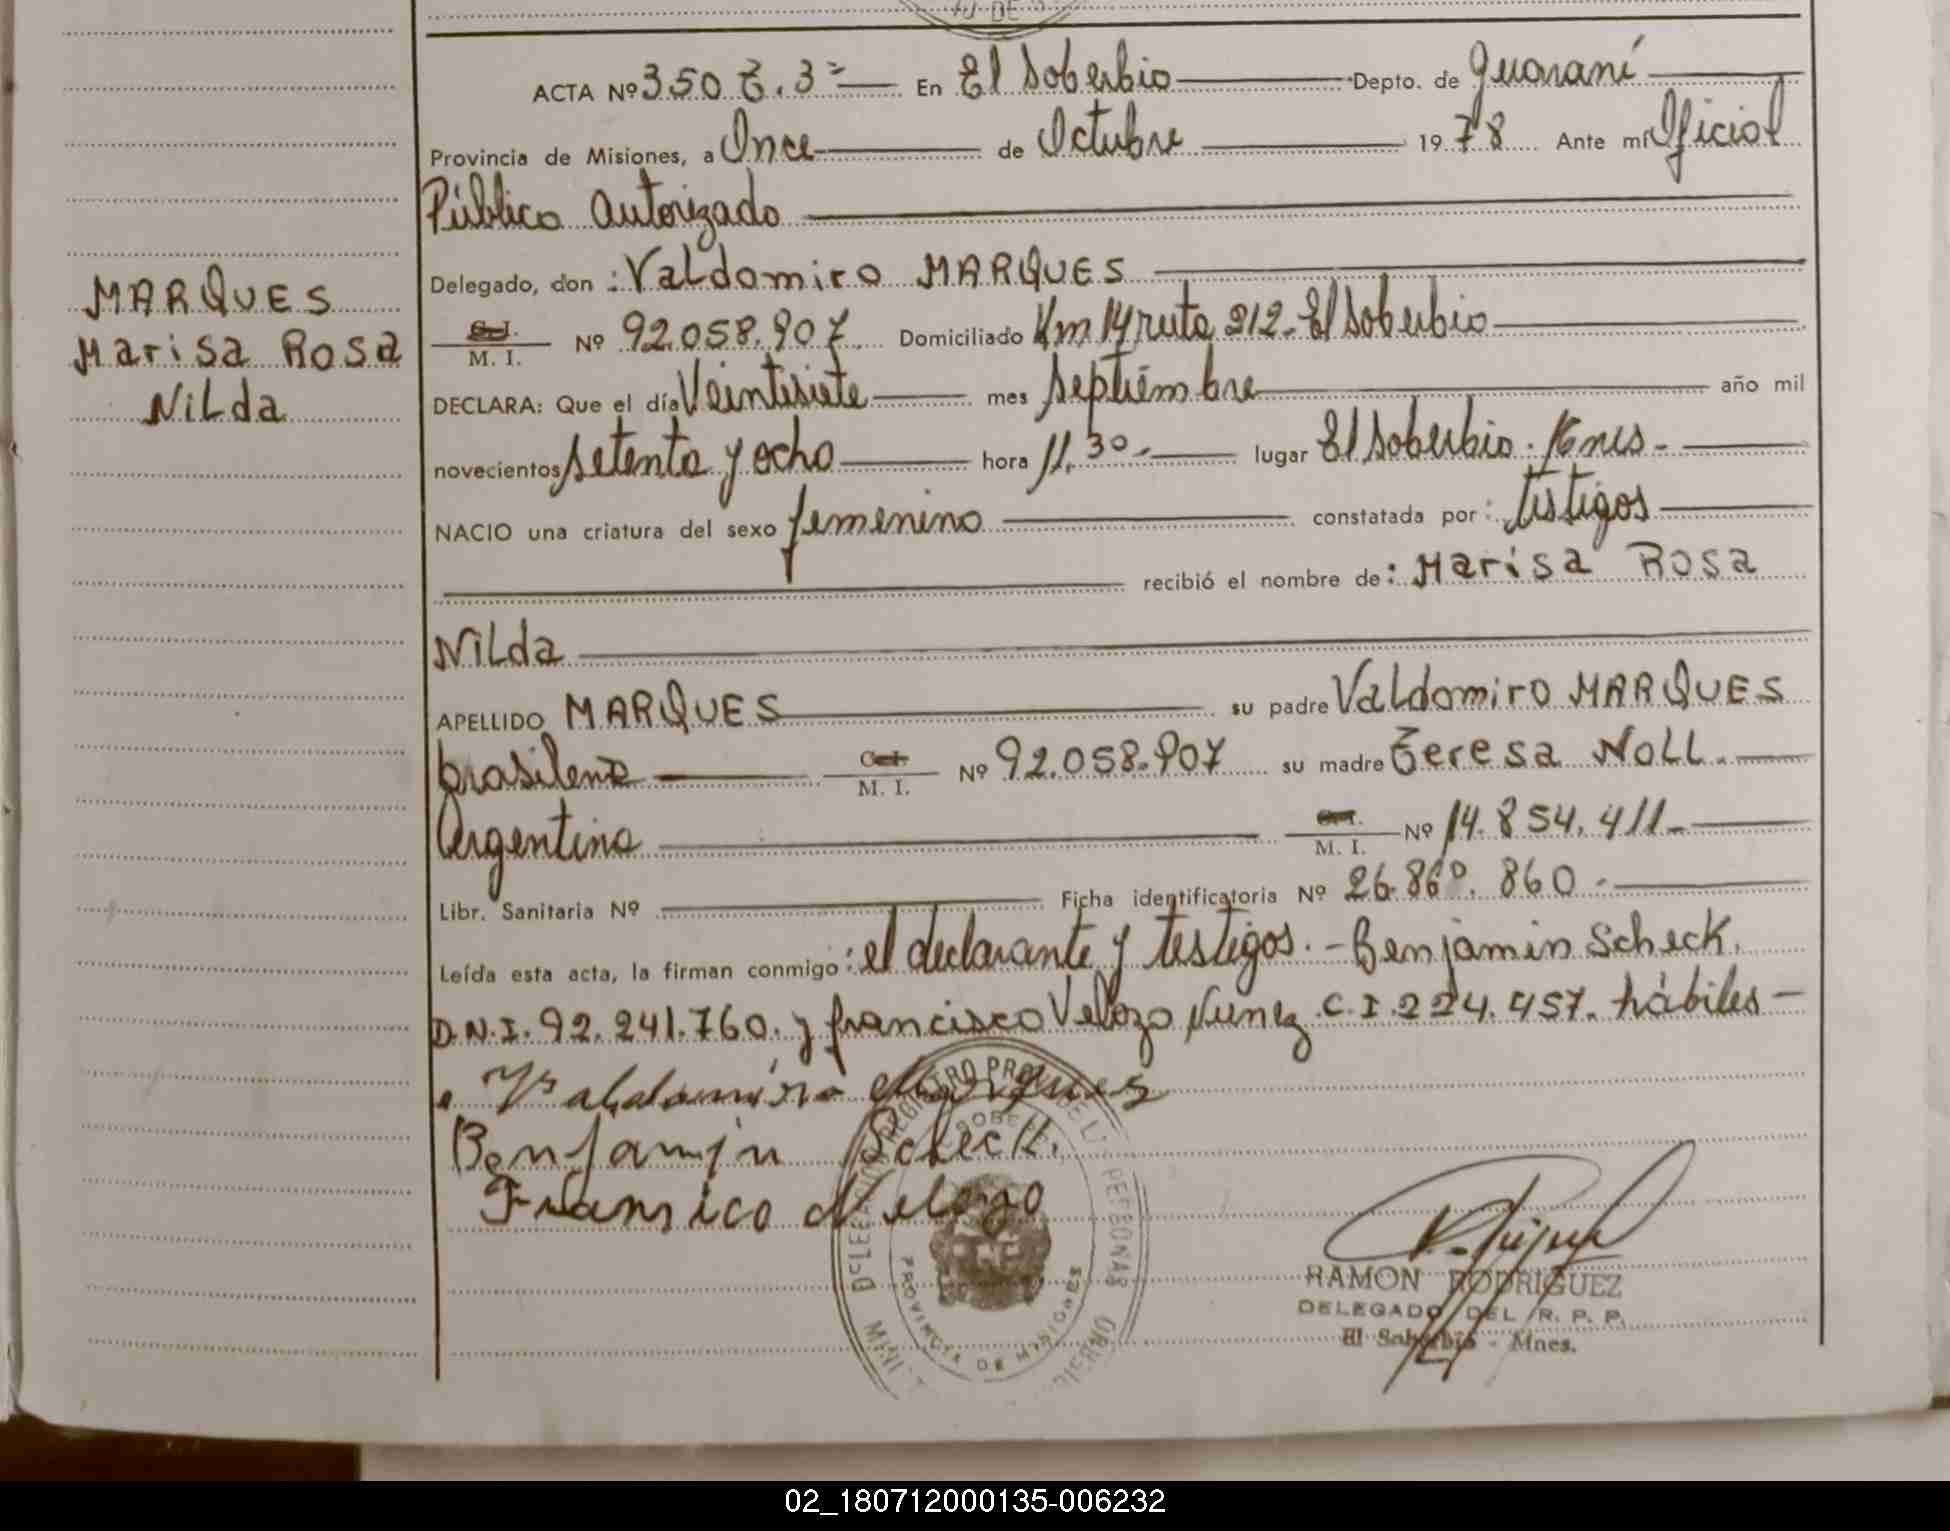 ACTA Nº 350 T. 3º En El Soberbio Depto. de Guaraní
Provincia de Misiones, a Once de Octubre 1978 Ante mí Oficial
Público Autorizado
Delegado, don : Valdomiro MARQUES
MARQUES
Marisa Rosa
Nilda
M. I. Nº 92.058.907 Domiciliado Km 14 ruta 212-El Soberbio
DECLARA: Que el día Veintisiete mes septiembre año mil
novecientos setenta y ocho hora 11.30.- lugar El Soberbio.
NACIO una criatura del sexo femenino constatada por : testigos
recibió el nombre de : Marisa Rosa
Nilda
APELLIDO MARQUES su padre Valdomiro MARQUES
brasileno M. I. Nº 92.058.907 su madre Teresa NOLL.
Argentina M. I. Nº 14.854.411-
Libr. Sanitaria Nº Ficha identificatoria Nº 26.860.860-
Leída esta acta, la firman conmigo : el declarante y testigos.-Benjamin Scheck.
D.N.I. 92.241.760. y francisco Velozo Nunez C.I. 224.457. hábiles-
Valdomiro Marques
Benjamin Scheck.
Fransico Velozo
PROVINCIA DE MISIONES
RAMON RODRIGUEZ
DELEGADO DEL R. P. P.
El Soberbio - Mnes.
02_180712000135-006232